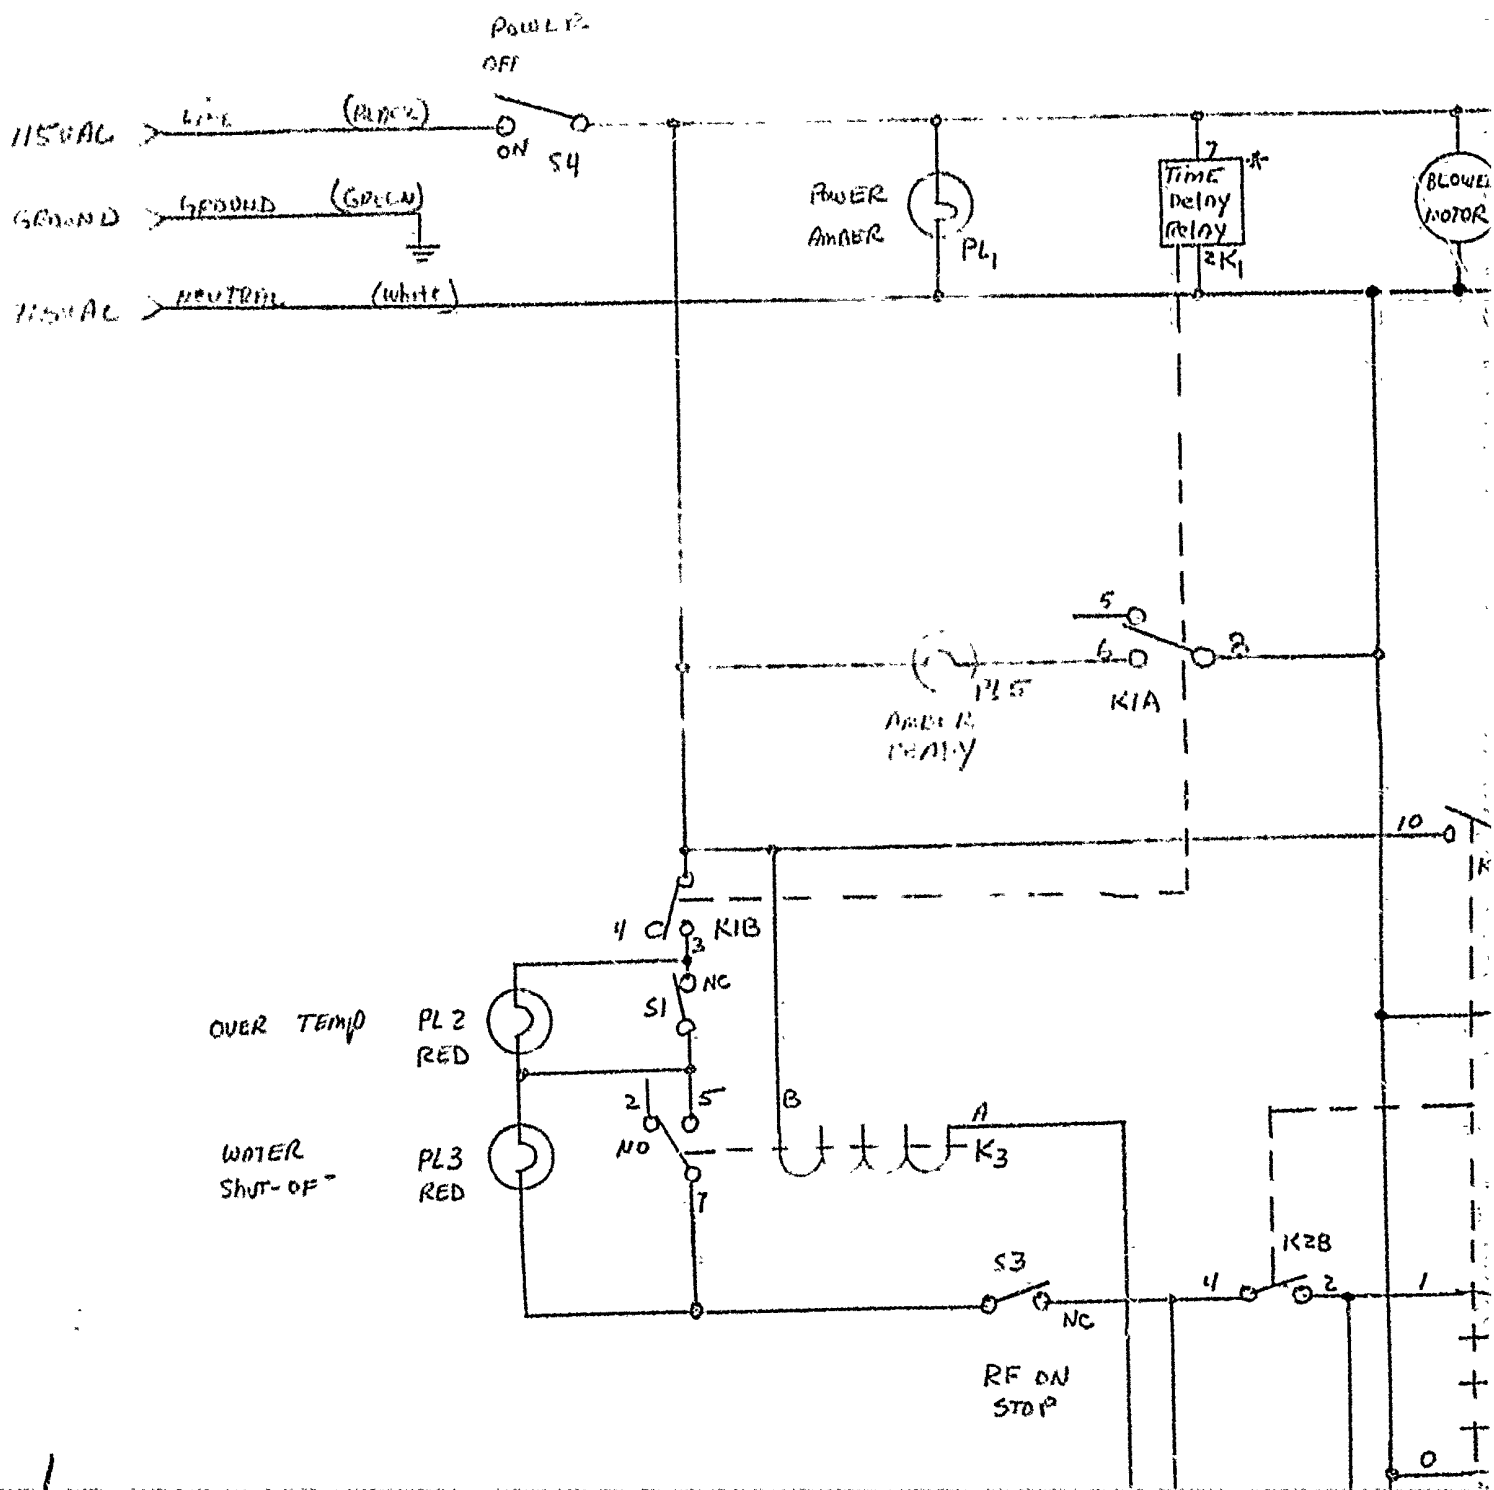 POWER
OFF
115VAC
LINE
(BLACK)
ON
S4
GROUND
GROUND
(GREEN)
115VAC
NEUTRAL
(White)
POWER
AMBER
PL1
7
*
TIME
Delay
Relay
2
K1
BLOWE
MOTOR
5
6
2
K1A
PL5
AMBER
READY
10
K
4
C
K1B
3
NC
S1
OVER TEMP
PL2
RED
2
5
NO
B
A
K3
WATER
Shut-OF
PL3
RED
7
S3
NC
RF ON
STOP
4
K2B
2
1
0